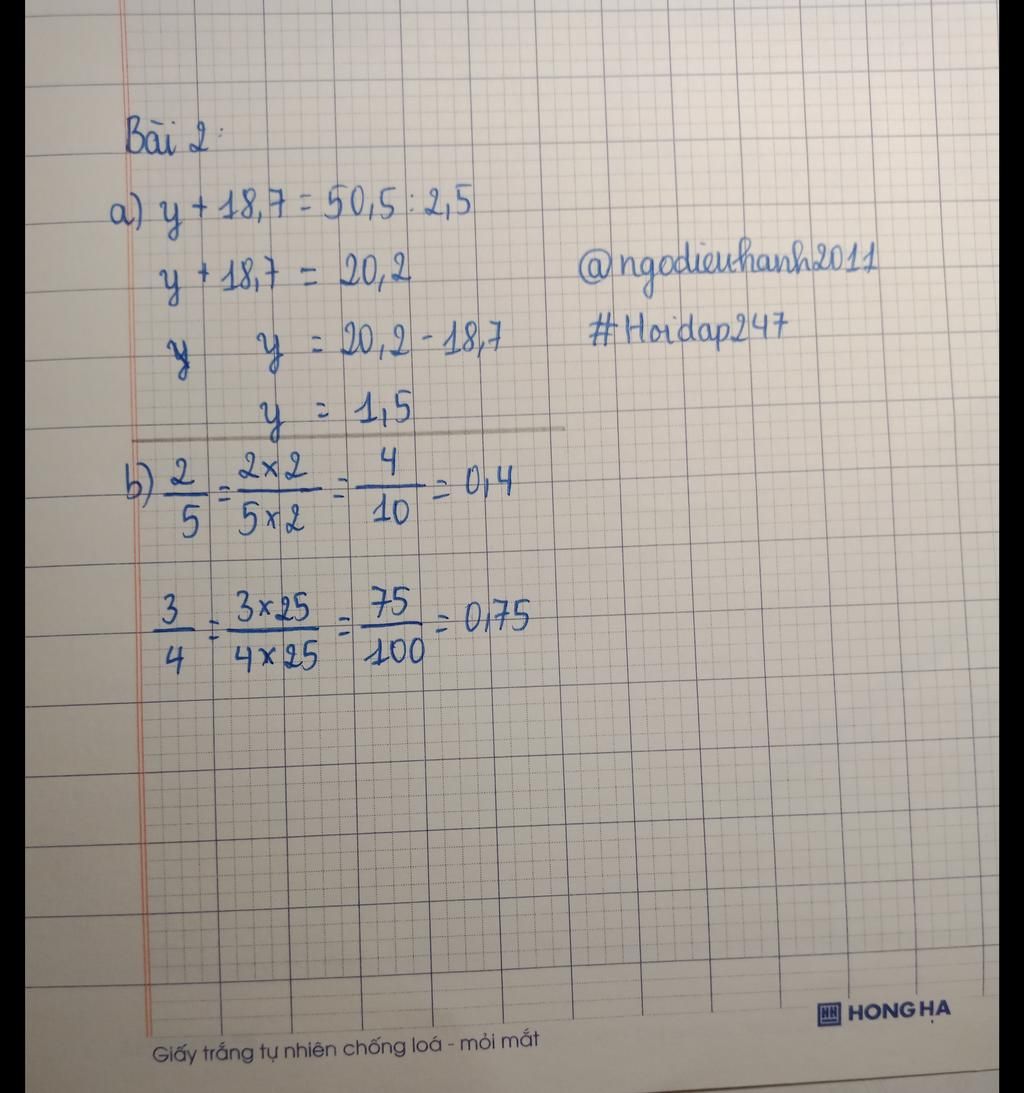 Bài 2:
a) y + 18,7 = 50,5 : 2,5
y + 18,7 = 20,2
@ngodieuhanh2011
y y = 20,2 - 18,7
#Hoidap247
y = 1,5
b) 2/5 = 2×2/5×2 = 4/10 = 0,4
3/4 = 3×25/4×25 = 75/100 = 0,75
HH HONG HA
Giấy trắng tự nhiên chống loá - mỏi mắt